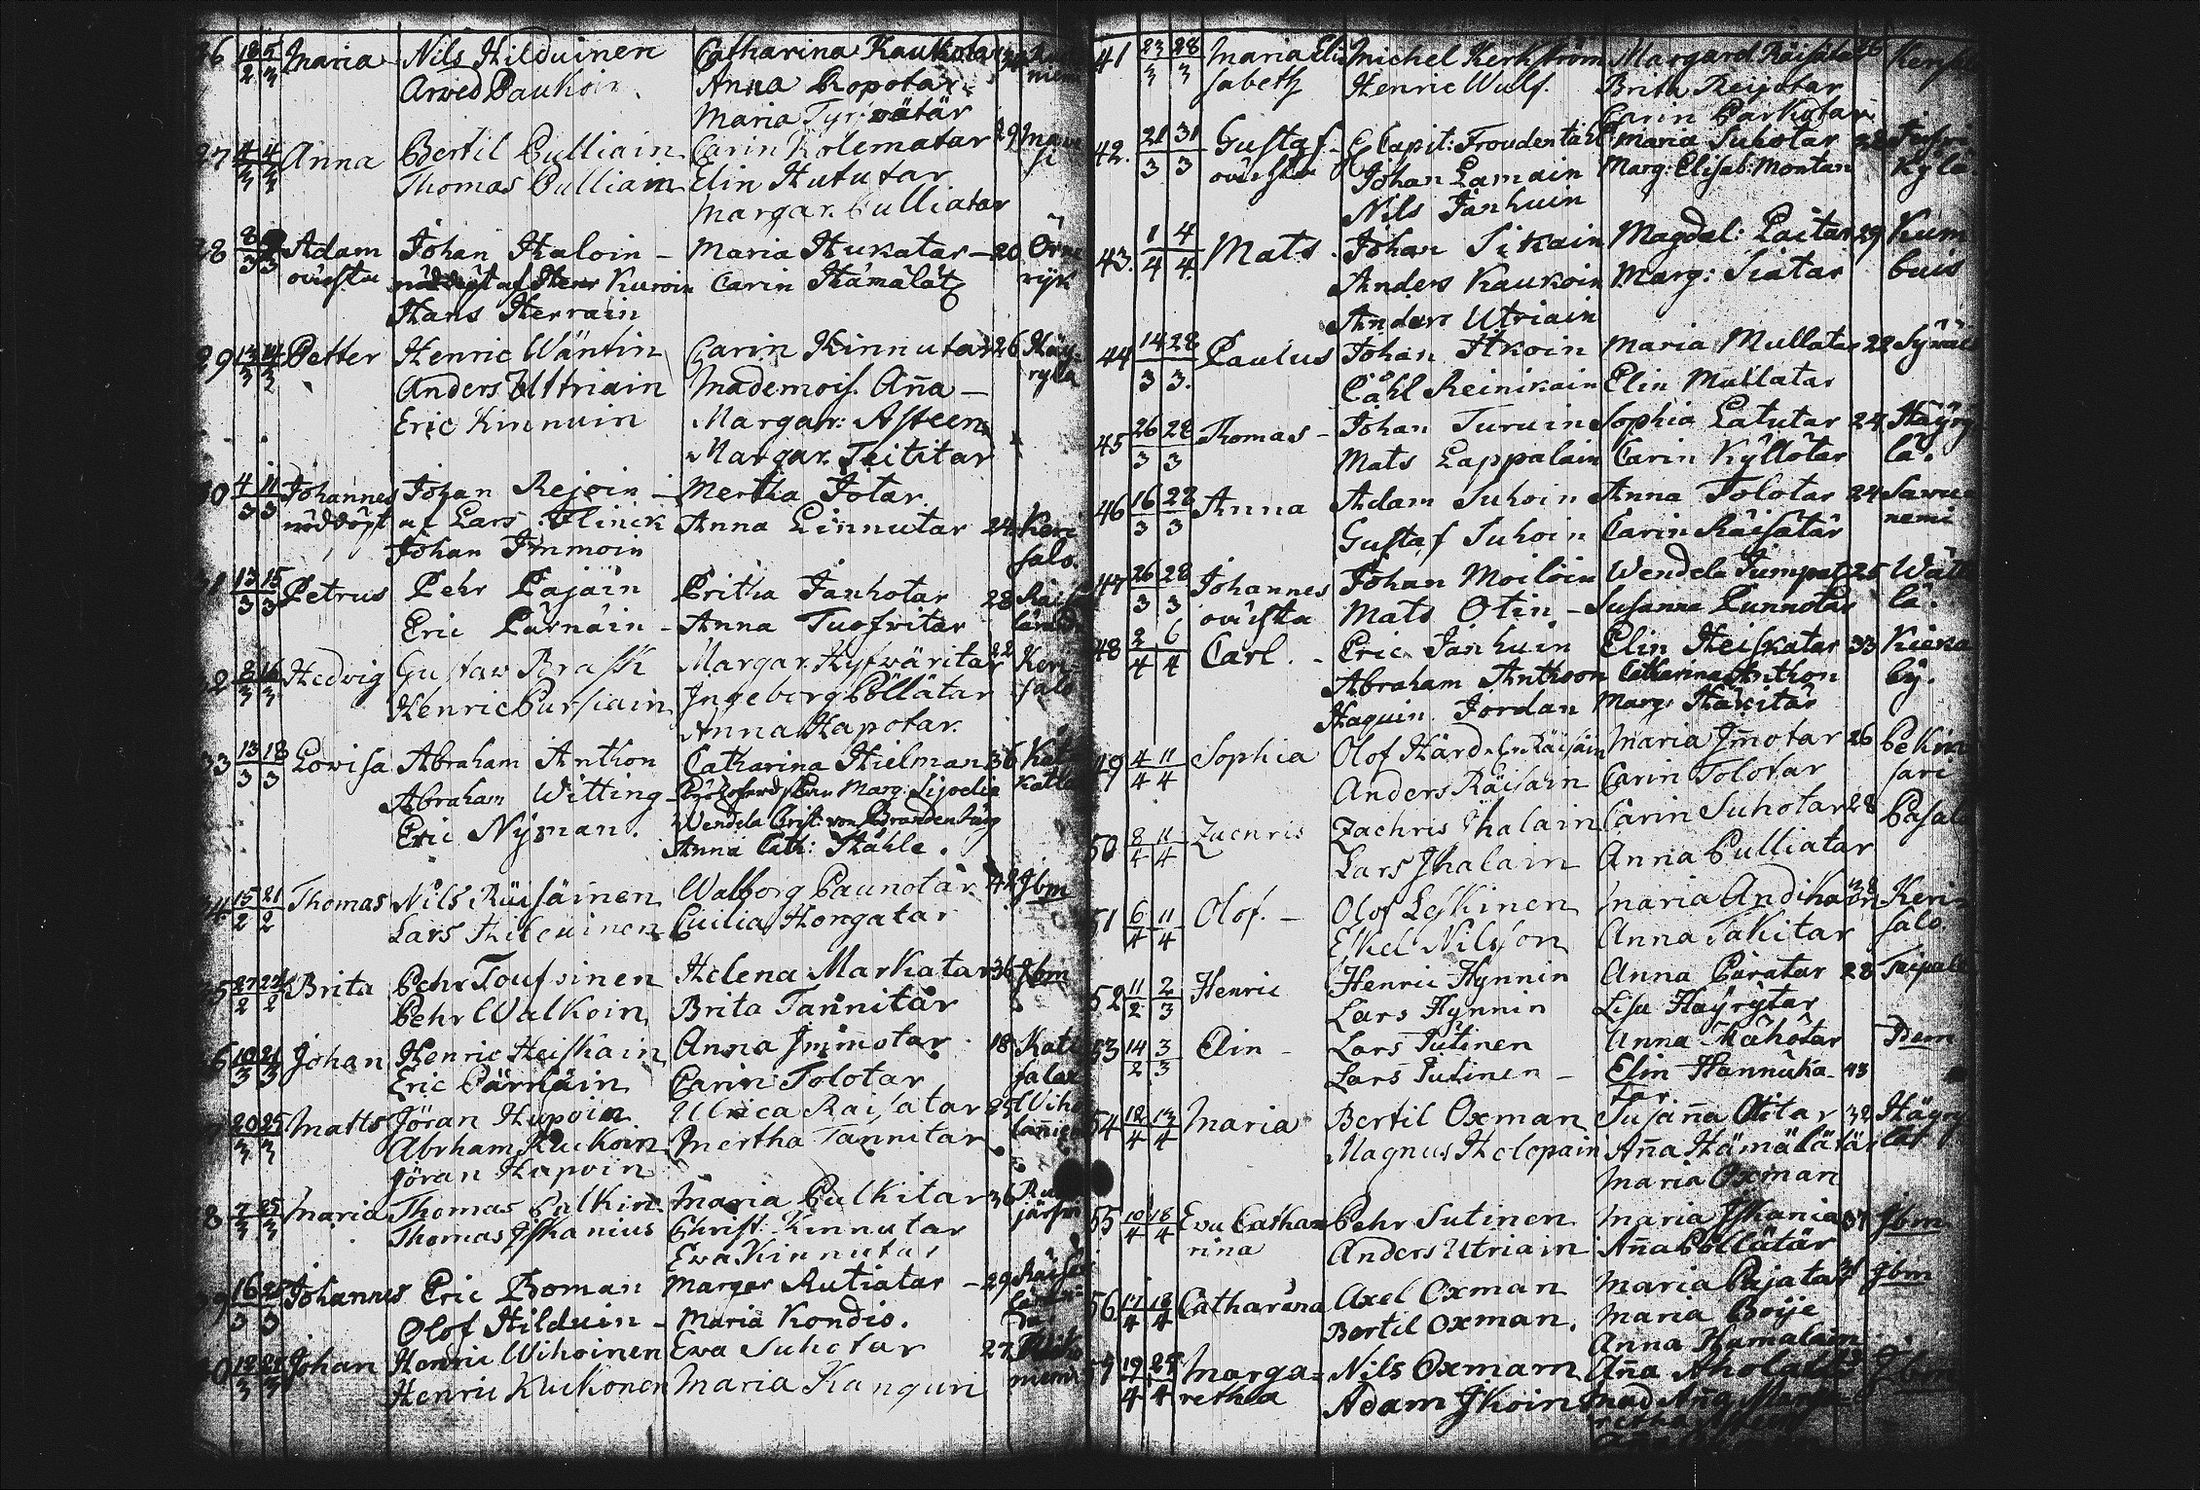 26 18/2 5/3 Maria Nils Hilduinen Catharina Kaukotar
Arvid Paukoin Anna Kopotar
Maria Tyrvätär
27 4/3 4/3 Anna Bertil Pulliain Carin Kolematar 29
Thomas Pulliain Elin Hututar
Margar. Pulliatar
28 8/3 Adam Johan Haloin - Maria Hukatar - 20
oächta nöddöpt af Herr Kuroin Carin Hämälät
rijk
Hans Herrain
29 13/3 14/3 Petter Henric Wäntin Carin Kinnutar 26 Häy-
rylä
Anders Uttriain Mademois. Aña -
Eric Kinnuin Margar: Asteen
Margar. Teititar
30 4/3 11/3 Johannes Johan Rejoin - Mertha Jotar
nöddöpt af Lars Flinck Anna Linnutar 24 Keri
Johan Immoin salo.
31 13/3 15/3 Petrus Pehr Pajain Britha Janhotar 28
Eric Pärnäin - Anna Tuofvitar
32 8/3 16/3 Hedvig Gustav Brask Margar. Hyfväritar 22 Keri-
salo
Henric Pursiain Ingeborg Pöllätar
Anna Hapotar.
33 13/3 18/3 Lovisa Abraham Anthon Catharina Hielman 36
Abraham Witting
Eric Nyman. Wendela Christ: von Brandenburg
Anna Cath: Ståhle.
34 15/2 21/2 Thomas Nils Räisäinen Walborg Paunotar 42 Jbm
Lars Hilduinen Cicilia Hongatar
35 27/2 Brita Pehr Toufsinen Helena Markatar 36 Jbm
Pehr Walkoin Brita Tannitär
36 10/3 21/3 Johan Henric Heiskain Anna Jmmotar 18
Eric Pärnäin Carin Tolotar
37 20/3 25/3 Matts Jöran Hapoin Ulrica Raisatar
Abrham Kuikoin Mertha Tannitar
Jöran Hapoin
38 7/3 25/3 Maria Thomas Pulkin Maria Pulkitar 36
järfvi
Thomas Jskanius Christ: Kinnutar
Eva Kinnutar
39 16/3 25/3 Johannes Eric Boman Margar Rutiatar - 29
Olof Hilduin - Maria Kondio.
40 Johan Henric Wihoinen Eva Suhotar 27
niemi
Henric Kuikonen Maria Kanguri
41 23/3 28/3 Maria Eli Michel Kerkström Margard Räisätar 26
sabeth Henric Wulf. Britha Reijotar
Carin Parkotar
42. 21/3 31/3 Gustaf - C Capit: Froudentahl Maria Suhotar 22
oächta Johan Lamain Marg: Elisab: Montan kylä
Nils Janhuin
43. 1/4 4/4 Mats. Johan Sikain Magdal: Paitar 29 Kum
Anders Kaukoin Marg: Siatar buis
Anders Utriain
44 14/3 28/3. Paulus Johan Itkoin Maria Mullatar 22
Cåhl Reinikain Elin Mullatar
45 26/3 28/3 Thomas - Johan Turuin Sophia Latutar 24 Häyry
Mats Lappalain Carin Kyllötar lä.
46 16/3 28/3 Anna Adam Suhoin Anna Tolotar 24 Savu
Gustaf Suhoin Carin Räisätär nemi
47 26/3 28/3 Johannes Johan Moiloin Wendela Jumpat 25 Wätt
oächta Mats Otin - Susanna Punnotar lä.
48 2/4 6/4 Carl. - Eric Janhuin Elin Heiskatar 33 Kieka
Abraham Anthoon Catharina Anthon by.
Haquin Jordan Marg: Häkitär
49 4/4 11/4 Sophia Olof Härd Maria Jmotar 26 Pekin
Anders Räisain Carin Tolotar sari
50 8/4 11/4 Zachris Zachris Jhalain Carin Suhotar 28 Pasala
Lars Jhalain Anna Pulliatar
51 6/4 11/4 Olof. - Olof Leskinen Maria Andikain 28 Keri-
Eskel Nilsson Anna Takitar salo.
52 11/2 2/3 Henric Henric Hynnin Anna Pàratar 28 Taipale
Lars Hynnin Lisa Häyrytar
53 14/2 3/3 Elin - Lars Jutinen Anna Mähötar Dem
Lars Jutinen - Elin Hannuka- 43
tar
54 12/4 13/4 Maria Bertil Oxman Susaña Otitar 32 Häyry
Magnus Holopain Aña Hämälätär lä
Maria Oxman
55 10/4 18/4 Eva Catha Pehr Sutinen Maria Jskania 37 Jbm
rina Anders Utriain Aña Pöllätär
56 17/4 18/4 Catharina Axel Oxman Maria Pajatar Jbm
Bertil Oxman. Maria Boije
Anna Hamalain
57 19/4 Marga= Nils Oxman Aña Aholatar
rethea Adam Jkoin